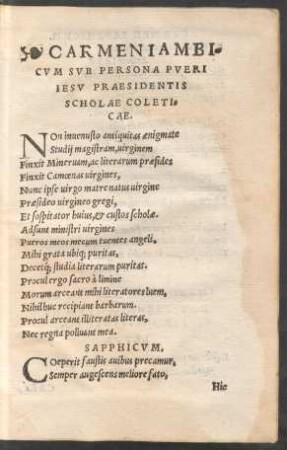 CARMEN IAMBI
CVM SVB PERSONA PVERI
IESV PRAESIDENTIS
SCHOLAE COLETI
CAE.
NOn inuenusto antiquitas ænigmate
Studij magistram, uirginem
Finxit Mineruam, ac literarum præsides
Finxit Camœnas uirgines,
Nunc ipse uirgo matre natus uirgine
Præsideo uirgineo gregi,
Et sospitator huius, & custos scholæ.
Adsunt ministri uirgines
Pueros meos mecum tuentes angeli.
Mihi grata ubiq; puritas,
Decetq; studia literarum puritas.
Procul ergo sacro à limine
Morum arceant mihi literatores luem,
Nihil huc recipiant barbarum.
Procul arceant illiteratas literas,
Nec regna polluant mea.
SAPPHICVM.
COeperit faustis auibus precamur,
Semper augescens meliore fato,
Hic